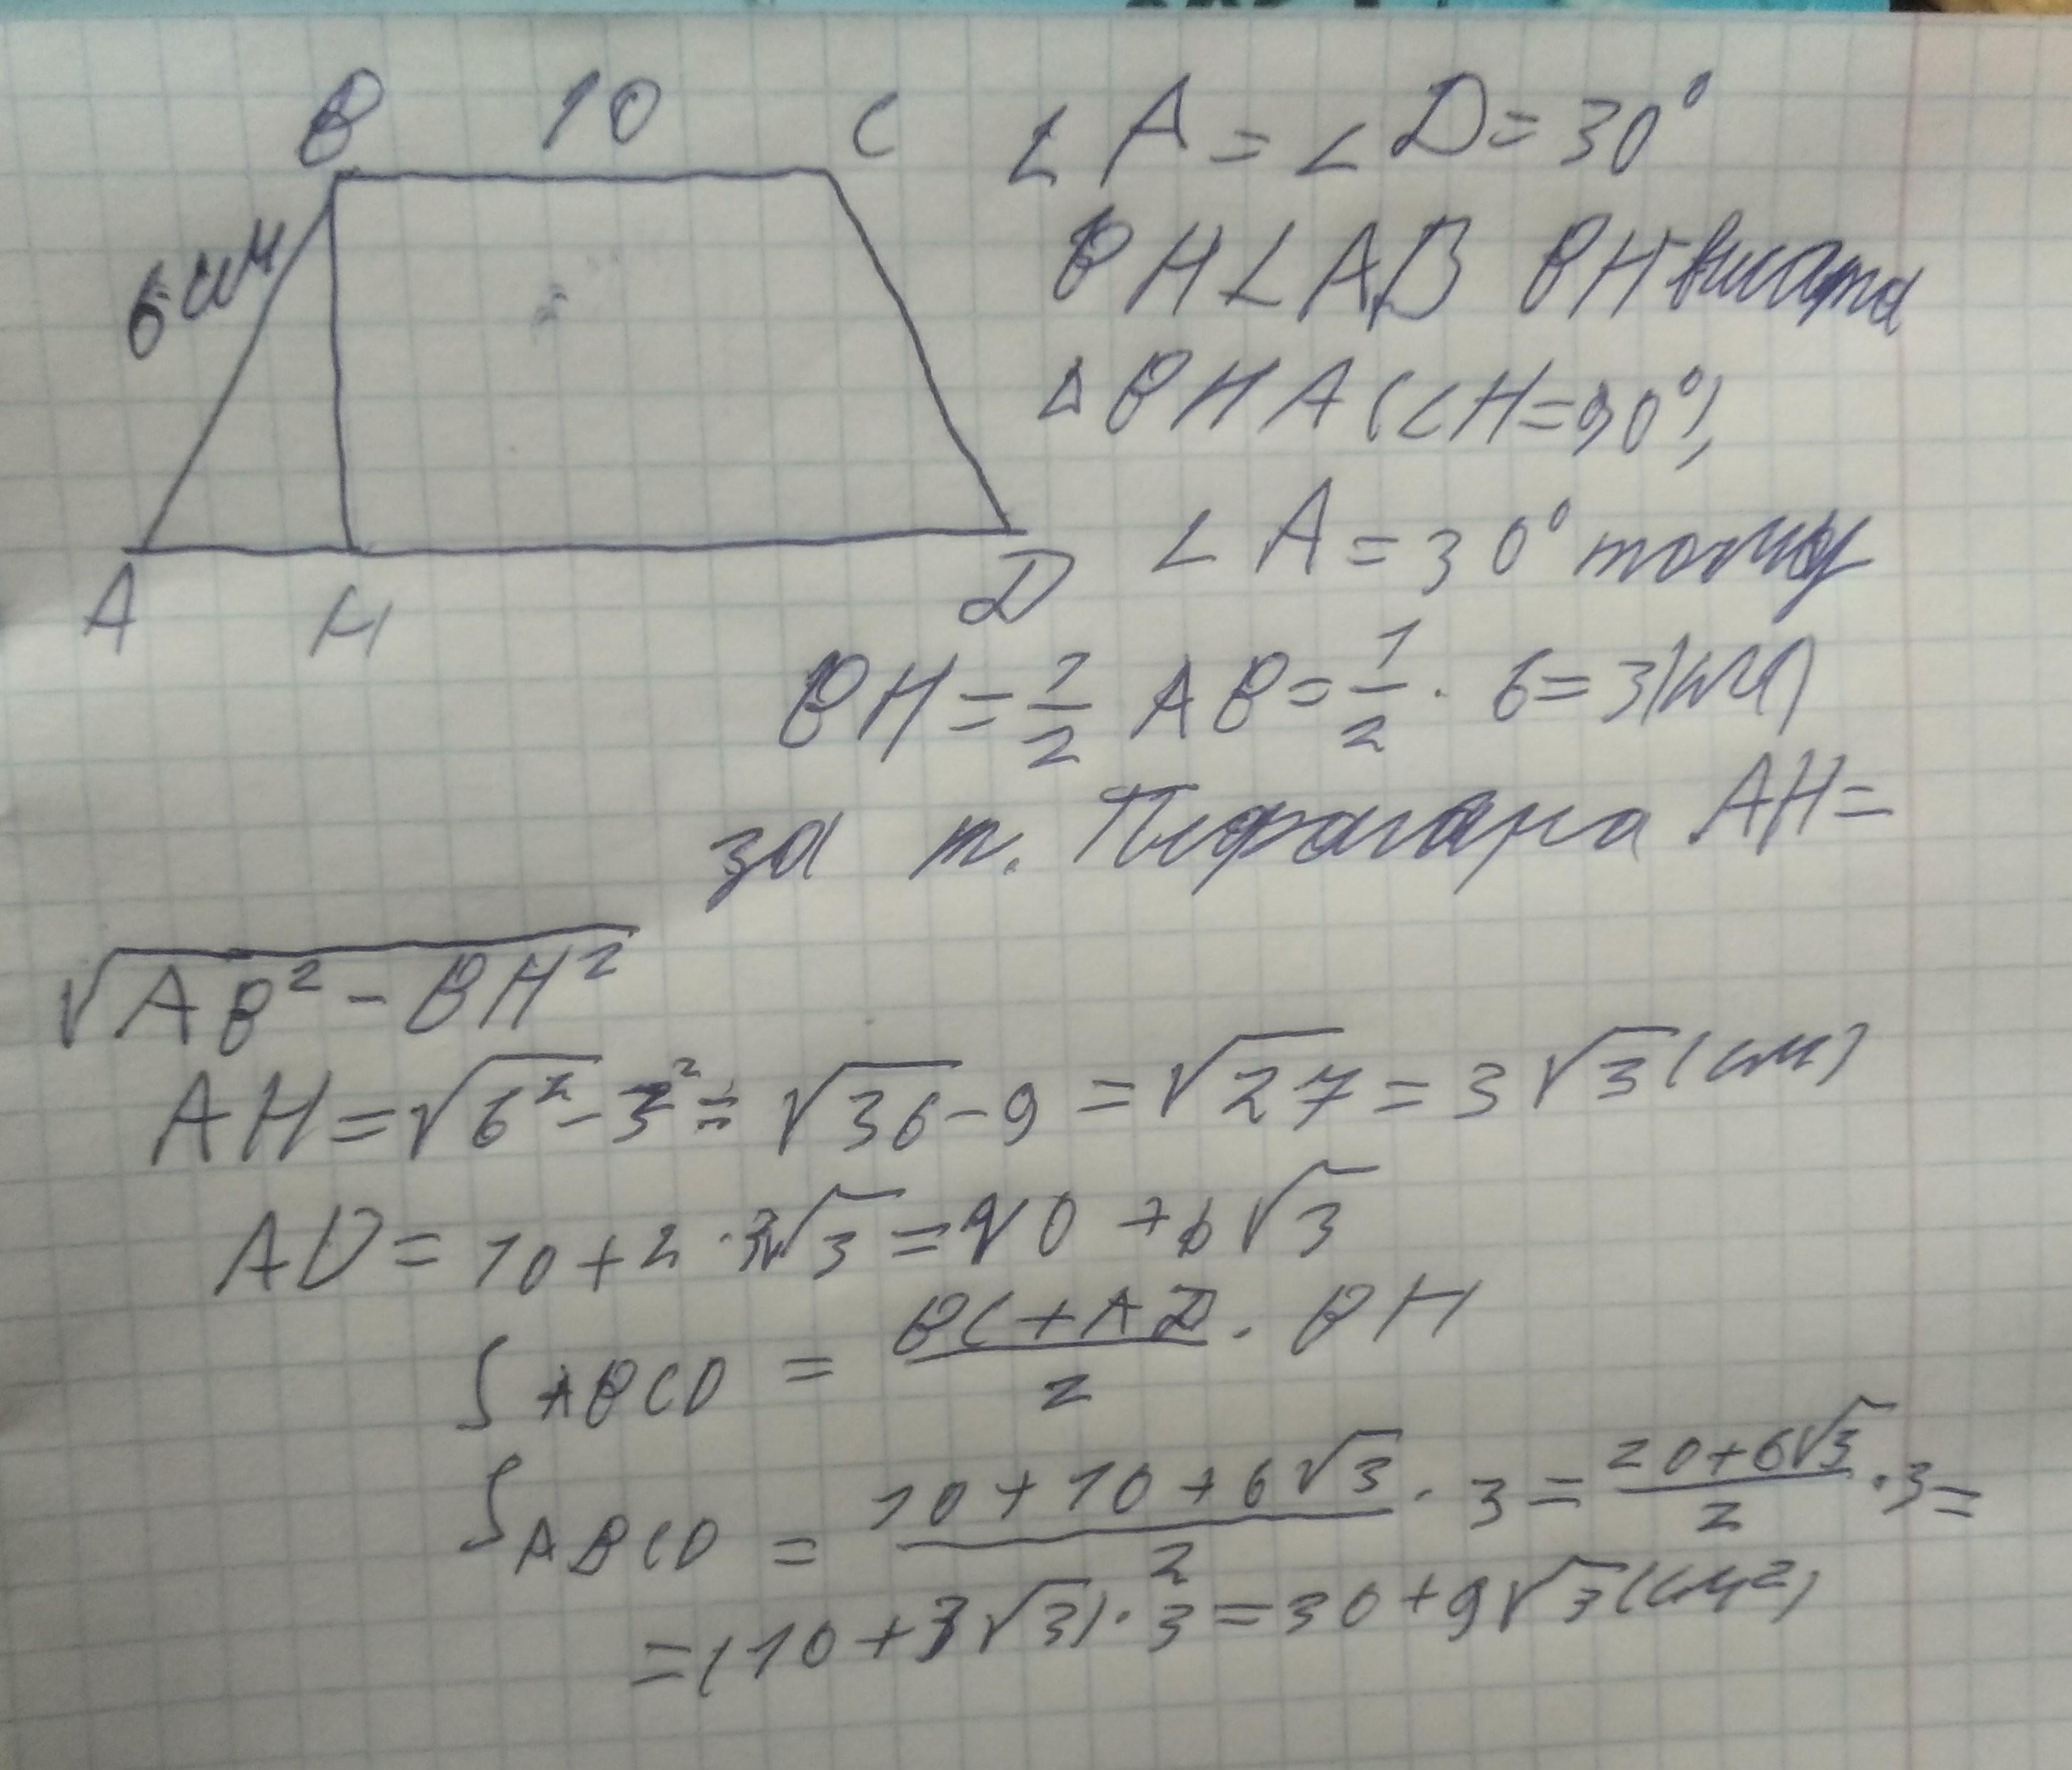 B 10 C
6 см
A H D
∠A = ∠D = 30°
BH ∠ AB BH - висота
△BHA (∠H = 90°),
∠A = 30° тому
BH = 1/2 AB = 1/2 · 6 = 3 (см)
за т. Піфагора AH =
√(AB² - BH²)
AH = √6² - 3² = √36 - 9 = √27 = 3√3 (см)
AD = 10 + 2 · 3√3 = 10 + 6√3
S ABCD = (BC + AD)/2 · BH
S ABCD = (10 + 10 + 6√3)/2 · 3 = (20 + 6√3)/2 · 3 =
= (10 + 3√3) · 3 = 30 + 9√3 (см²)